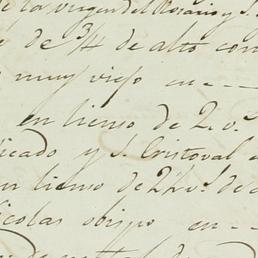 la virgen del Rosario y S.
de 3/4 de alto con
muy viejo en
en lienso de 2 v.s
icado y S. Cristoval
un lienso de 2 1/2 v.s de
icolas obispo en